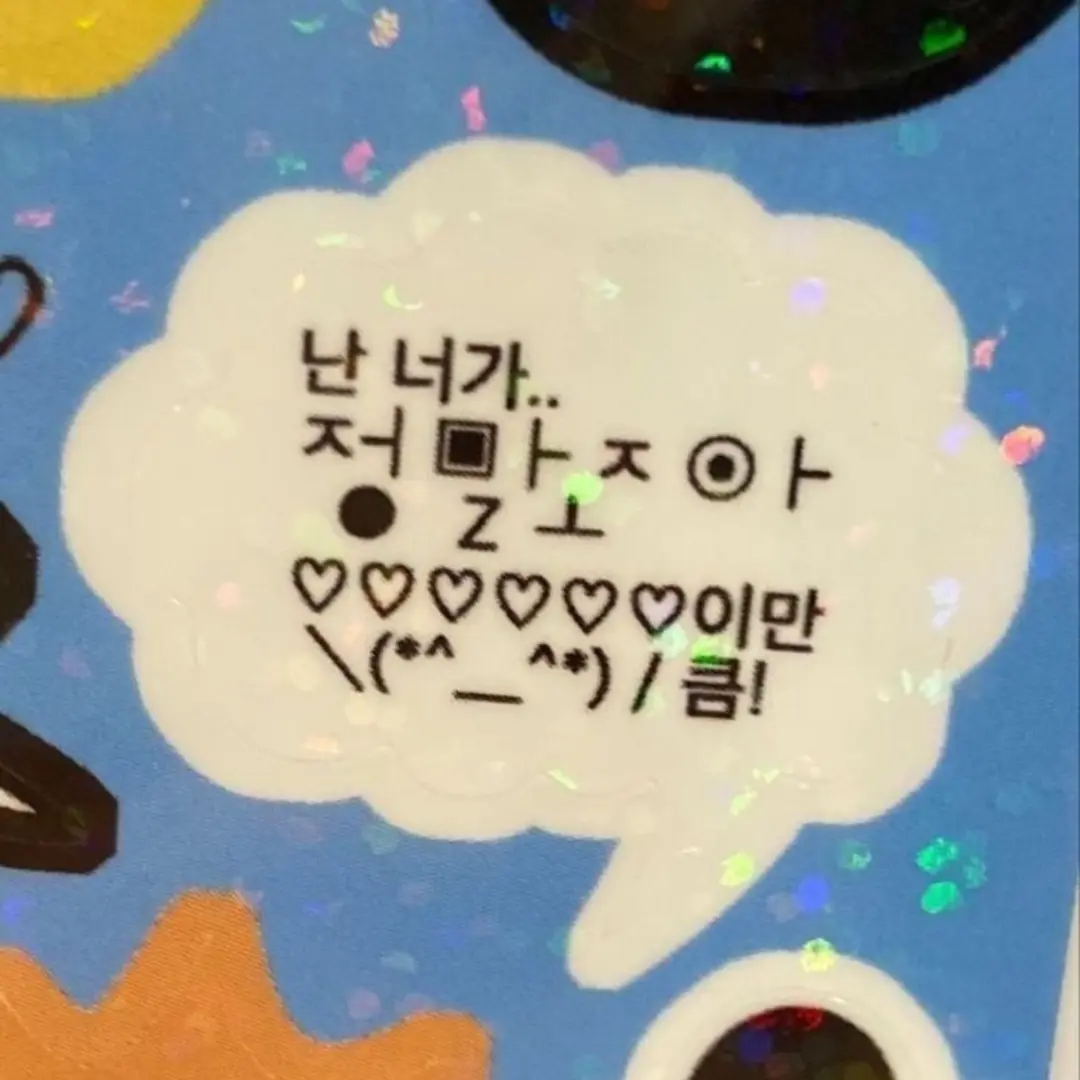 난 너가..
저 ▣ㅏ ㅈ ◉ㅏ
● Z ㅗ
♡♡♡♡♡♡이만
\(*^__^*) / 큼!